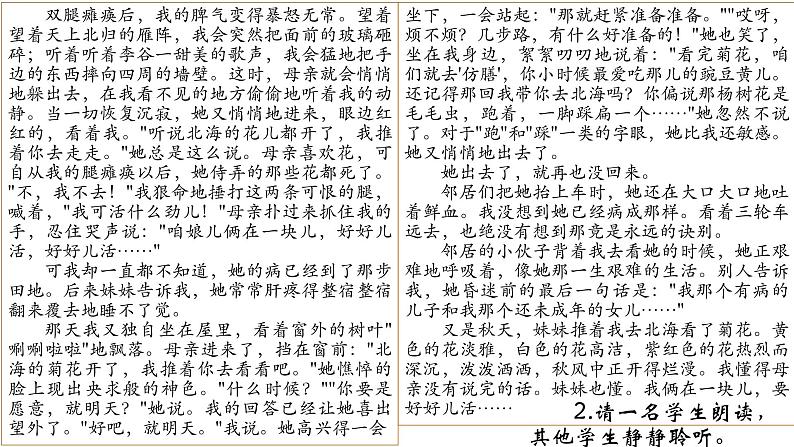 双腿瘫痪后，我的脾气变得暴怒无常。望着
望着天上北归的雁阵，我会突然把面前的玻璃砸
碎；听着听着李谷一甜美的歌声，我会猛地把手
边的东西摔向四周的墙壁。这时，母亲就会悄悄
地躲出去，在我看不见的地方偷偷地听着我的动
静。当一切恢复沉寂，她又悄悄地进来，眼边红
红的，看着我。"听说北海的花儿都开了，我推
着你去走走。"她总是这么说。母亲喜欢花，可
自从我的腿瘫痪以后，她侍弄的那些花都死了。
"不，我不去！"我狠命地捶打这两条可恨的腿，
喊着，"我可活什么劲儿！"母亲扑过来抓住我的
手，忍住哭声说："咱娘儿俩在一块儿，好好儿
活，好好儿活……"
可我却一直都不知道，她的病已经到了那步
田地。后来妹妹告诉我，她常常肝疼得整宿整宿
翻来覆去地睡不了觉。
那天我又独自坐在屋里，看着窗外的树叶"
唰唰啦啦"地飘落。母亲进来了，挡在窗前："北
海的菊花开了，我推着你去看看吧。"她憔悴的
脸上现出央求般的神色。"什么时候？""你要是
愿意，就明天？"她说。我的回答已经让她喜出
望外了。"好吧，就明天。"我说。她高兴得一会
坐下，一会站起："那就赶紧准备准备。""哎呀，
烦不烦？几步路，有什么好准备的！"她也笑了，
坐在我身边，絮絮叨叨地说着："看完菊花，咱
们就去'仿膳'，你小时候最爱吃那儿的豌豆黄儿。
还记得那回我带你去北海吗？你偏说那杨树花是
毛毛虫，跑着，一脚踩扁一个……"她忽然不说
了。对于"跑"和"踩"一类的字眼，她比我还敏感。
她又悄悄地出去了。
她出去了，就再也没回来。
邻居们把她抬上车时，她还在大口大口地吐
着鲜血。我没想到她已经病成那样。看着三轮车
远去，也绝没有想到那竟是永远的诀别。
邻居的小伙子背着我去看她的时候，她正艰
难地呼吸着，像她那一生艰难的生活。别人告诉
我，她昏迷前的最后一句话是："我那个有病的
儿子和我那个还未成年的女儿……"
又是秋天，妹妹推着我去北海看了菊花。黄
色的花淡雅，白色的花高洁，紫红色的花热烈而
深沉，泼泼洒洒，秋风中正开得烂漫。我懂得母
亲没有说完的话。妹妹也懂。我俩在一块儿，要
好好儿活……
2.请一名学生朗读，
其他学生静静聆听。